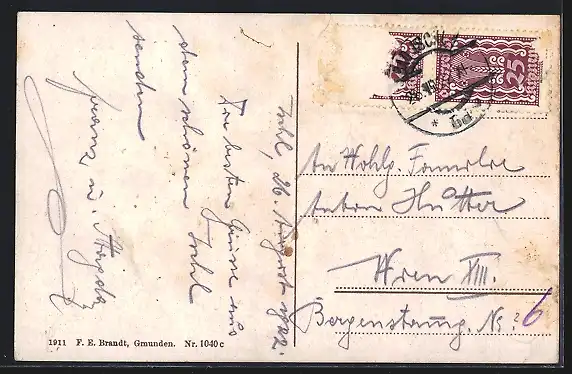 Ischl, 26. August 1922.
Die besten Grüsse aus
dem schönen Ischl
senden
Franz u.
An Wohlg. Familie
Anton Hütter
Wien XIII.
No. 6
25
1911 F. E. Brandt, Gmunden. Nr. 1040 c